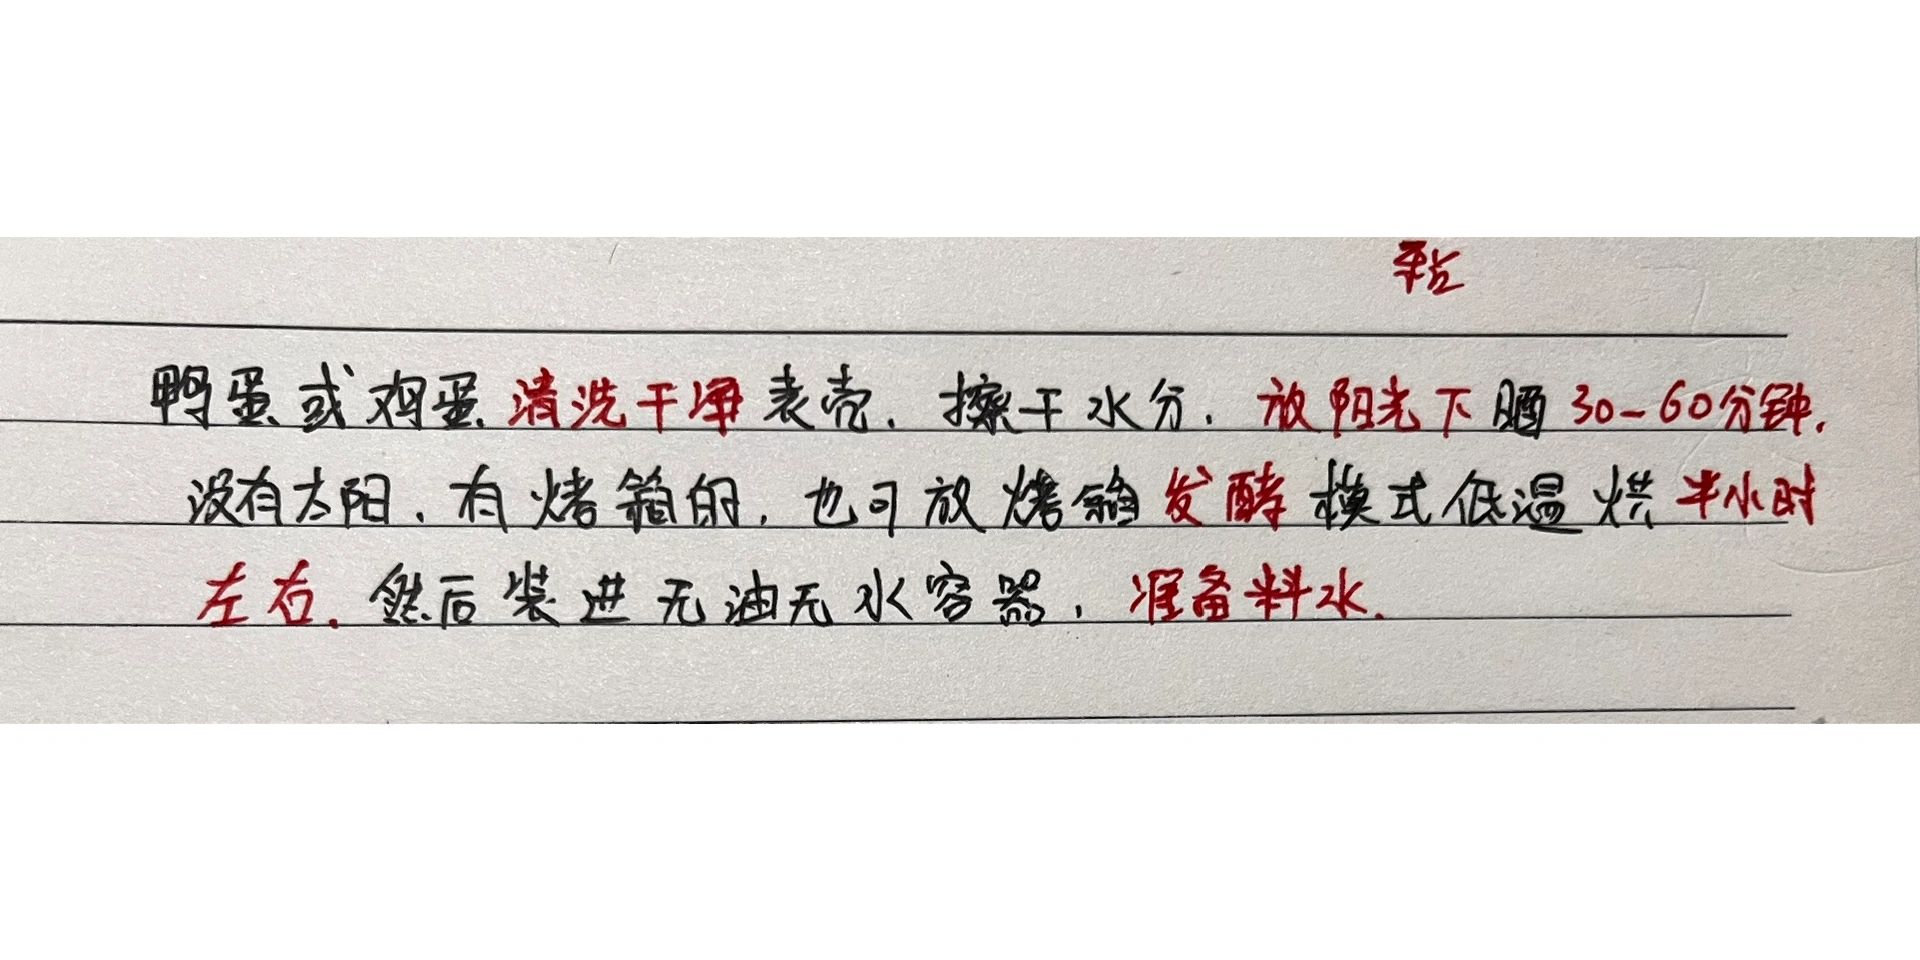 鸭蛋或鸡蛋清洗干净表壳,擦干水分,放阳光下晒30-60分钟.
没有太阳,有烤箱的,也可放烤箱发酵模式低温烘半小时
左右.然后装进无油无水容器,准备料水.